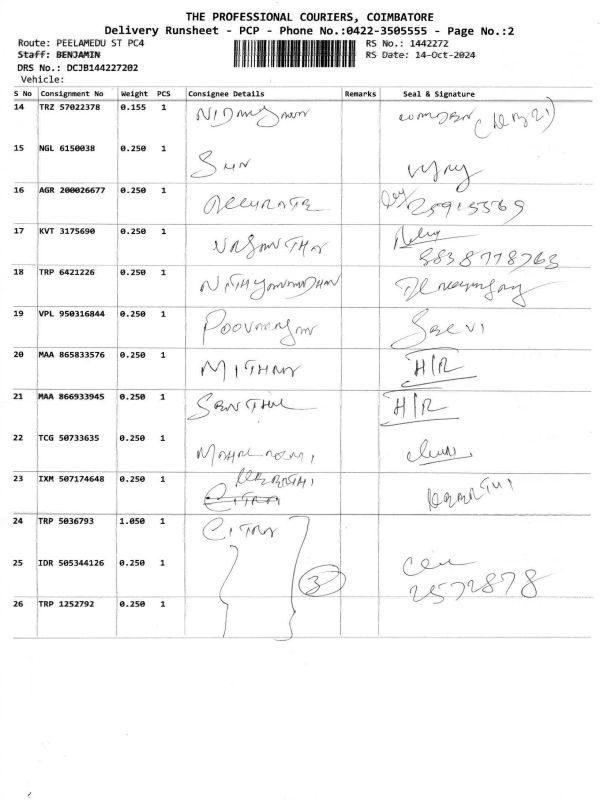 THE PROFESSIONAL COURIERS, COIMBATORE
Delivery Runsheet - PCP - Phone No.:0422-3505555 - Page No.:2
Route: PEELAMEDU ST PC4 RS No.: 1442272
Staff: BENJAMIN RS Date: 14-Oct-2024
DRS No.: DCJB144227202
Vehicle:
S No Consignment No Weight PCS Consignee Details Remarks Seal & Signature
14 TRZ 57022378 0.155 1
15 NGL 6150038 0.250 1 Sun Vijay
16 AGR 200026677 0.250 1 ACCURATE 25915569
17 KVT 3175690 0.250 1 VASANTHA
8838778763
18 TRP 6421226 0.250 1
19 VPL 950316844 0.250 1 Selvi
20 MAA 865833576 0.250 1 MITHRA H/R
21 MAA 866933945 0.250 1 SENTHIL H/R
22 TCG 50733635 0.250 1
23 IXM 507174648 0.250 1 KEERTHI KEERTHI
CITRA
24 TRP 5036793 1.050 1 CITRA
25 IDR 505344126 0.250 1 3
2572878
26 TRP 1252792 0.250 1